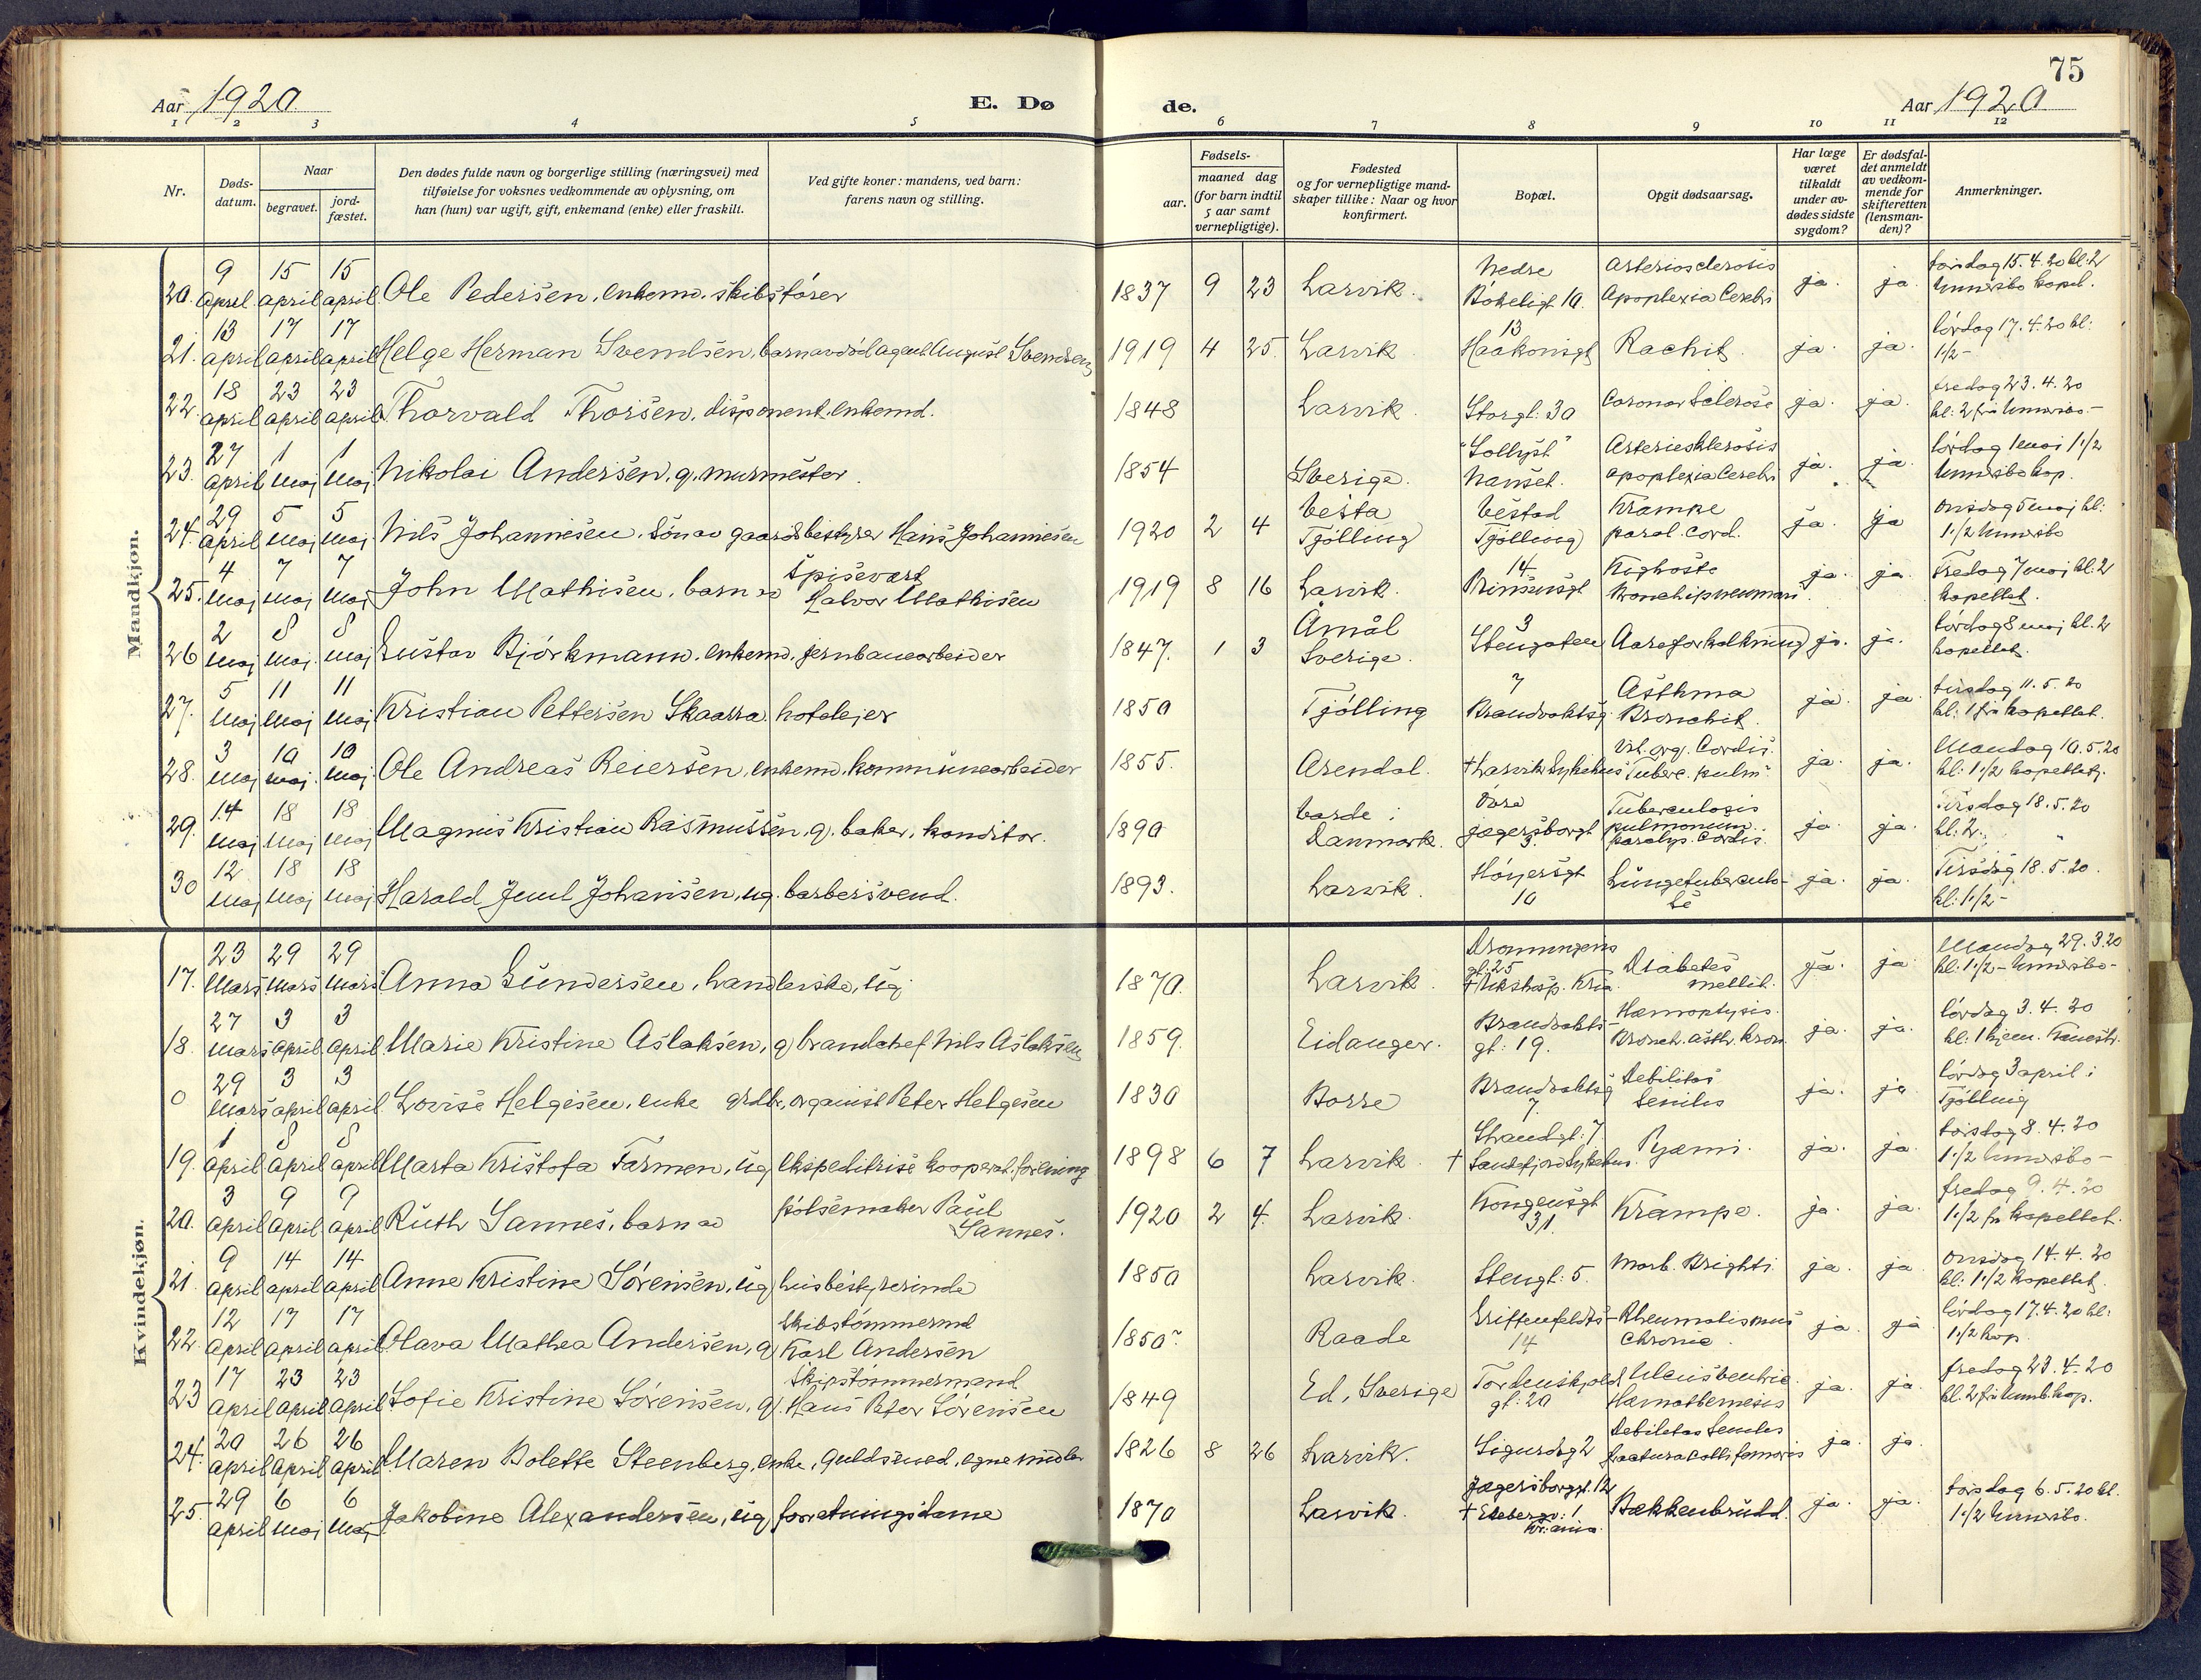 75
Aar 1920
E. Dø
de.
Aar 1920
1 2 3 4 5 6 7 8 9 10 11 12
Nr.
Døds-
datum.
Naar
begravet.
jord-
fæstet.
Den dødes fulde navn og borgerlige stilling (næringsvei) med
tilføielse for voksnes vedkommende av oplysning, om
han (hun) var ugift, gift, enkemand (enke) eller fraskilt.
Ved gifte koner: mandens, ved barn:
farens navn og stilling.
Fødsels-
aar.
maaned dag
(for barn indtil
5 aar samt
vernepligtige).
Fødested
og for vernepligtige mand-
skaper tillike: Naar og hvor
konfirmert.
Bopæl.
Opgit dødsaarsag.
Har læge
været
tilkaldt
under av-
dødes sidste
sygdom?
Er dødsfal-
det anmeldt
av vedkom-
mende for
skifteretten
(lensman-
den)?
Anmerkninger.
Mandkjøn.
20. 9 april 15 april 15 april Ole Pedersen, enkem. skibsfører 1837 9 23 Larvik. Nedre Bøkeligt 10. Arteriosclerosis Apoplexia Cerebri ja. ja. torsdag 15.4.20 kl. 2 Undersbo kapel.
21. 13 april 17 april 17 april Helge Herman Svendsen, barn av død agent August Svendsen 1919 4 25. Larvik 13 Haakonsgt Rachit. ja. ja. lørdag 17.4.20 kl: 1 1/2 -
22. 18 april 23 april 23 april Thorvald Thorsen, disponent. enkemd. 1848 Larvik. Storgt: 30 Coronar Sclerose ja. ja. fredag 23.4.20 kl: 2 fra Undersbo. -
23. 27 april 1 maj 1 maj Nikolai Andersen, g. murmester. 1854 Sverige. "Sollyst" Nanset. Arteriesklerosis apoplexia Cerebri ja. ja. lørdag 1 maj 1 1/2 Undersbo kap.
24. 29 april 5 maj 5 maj Nils Johannesen, søn av gaardsbestyrer Hans Johannesen 1920 2 4 Vesta Tjølling Vestad Tjølling Krampe paral. cord. ja. ja onsdag 5 maj kl: 1 1/2 Undersbo
25. 4 maj 7 maj 7 maj John Mathisen, barn av spisevært Halvor Mathisen 1919 8 16 Larvik. 14 Kighoste Bronchipneumoni. ja. ja. Fredag 7 maj kl. 2 kapellet.
26 2 maj 8 maj. 8 maj Gustav Bjørkmann. enkem. jernbanearbeider 1847. 1 3 Åmål Sverige. 3 Stengaten Aareforkalkning ja. ja. lørdag 8 maj kl. 2 kapellet.
27. 5 maj 11 maj 11 maj Kristian Pettersen Skaara. hoteleier 1850 Tjølling 7 Brandvaktsg Asthma Bronchit. ja. ja tirsdag 11.5.20 kl: 1 fra kapellet.
28. 3 maj 10 maj. 10 maj Ole Andreas Reiersen, enkem. kommunearbeider 1855. Arendal. † Larvik Sykehus Vit. org. Cordis. Tuberc. pulm. ja. ja. Mandag 10.5.20 kl: 1 1/2 kapellet.
29. 14 maj 18 maj 18 maj Magnus Kristian Rasmussen, g. baker, konditor. 1890 Varde i Danmark. Øvre Jægersborggt 3. Tuberculosis pulmonum. paralys. Cordis. ja ja. Tirsdag 18.5.20 kl: 2.
30 12 maj 18 maj 18 maj Harald Juul Johansen, ug. barbersvend. 1893. Larvik. Høyersgt 10 Lungetuberculose ja. ja. Tirsdag 18.5.20. kl: 1 1/2 -
Kvindekjøn.
17. 23 Mars 29 Mars 29 Mars Anna Gundersen, handlerske, ug. 1870. Larvik. Dronningens gt: 25 † Rikshosp. Kria. Diabetes mellit. ja. ja Mandag 29.3.20 kl: 1 1/2 - Undersbo -
18. 27 Mars 3 april 3 april Marie Kristine Aslaksen, g brandchef Nils Aslaksen 1859. Eidanger. Brandvakts- gt: 19. Hæmoptysis. Bronch. asth. kron. ja. ja. lørdag 3.4.20 kl: 1 hjem.
0 29 Mars 3 april 3 april Lovise Helgesen, enke grdbr, organist Peter Helgesen 1830 Borre Brandvaktsg 7 Debilitas Senilis ja. ja lørdag 3 april i Tjølling
19. 1 april 8 april 8 april Marta Kristofa Farmen, ug ekspeditrise kooperat. forening 1898 6 7 Larvik. Strandgt: 7. † Sandefjord Sykehus. Pyæmi. ja. ja. torsdag 8.4.20 1 1/2 Undersbo -
20. 3 april 9 april 9 april Ruth Sannes, barn av pølsemaker Paul Sannes. 1920 2 4. Larvik. Kongensgt 31. Krampe. ja. ja. fredag 9.4.20 1 1/2 fr kapellet.
21. 9 april 14 april 14 april Anne Kristine Sørensen, ug husbestyrerinde 1850 Larvik. Stengt: 5. Morb. Brighti ja. ja onsdag 14.4.20 kl: 1 1/2 kapellet.
22. 12 april 17 april 17 april Olava Mathea Andersen, g skibstømmermd Karl Andersen 1850. Raade Griffenfeldts- 14 Rheumatismus chronic. ja ja lørdag 17.4.20 kl: 1 1/2 kap
23 17 april 23 april 23 april Sofie Kristine Sørensen, g. skipstømmermand Hans Peter Sørensen 1849 Ed, Sverige Tordenskjold gt: 20 Ulcus ventric. Hæmathemesis ja. ja. fredag 23.4.20 kl. 2 fra Undb kap.
24. 20 april 26 april 26 april Maren Bolette Steenberg, enke, guldsmed, egne midler 1826 8 26 Larvik. Sigurdsg 2 Debilitas Senilis fractura colli femoris ja. ja.
25. 29 april 6 maj 6 maj Jakobine Alexandersen, ug forretningsdame 1870 Larvik. Jægersborggt. 12 † Ekebergv: 1 Kr.ania. Bækkenbrudd. ja. ja. torsdag 6.5.20 kl. 1 1/2 Undersbo.